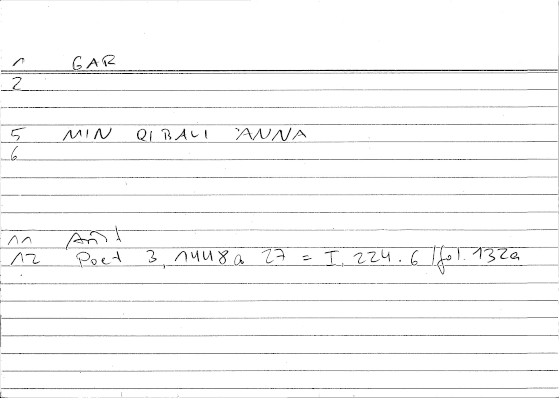 1 GAR
2
5 MIN QIBALI 'ANNA
6
11 Arist
12 Poet 3, 1448a 27 = I, 224.6 / fol. 132a